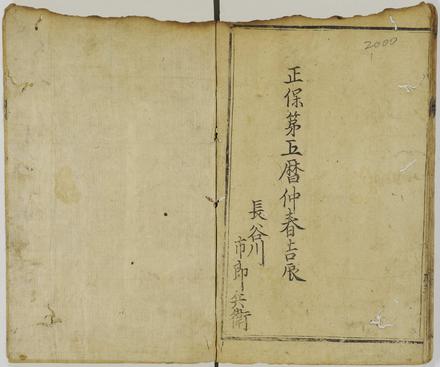 正保第五暦仲春吉辰
長谷川
市郎兵衛
2000